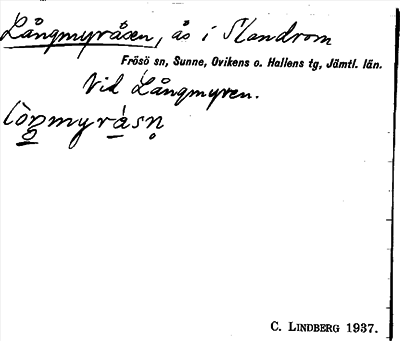 Långmyråsen, ås i Slandrom
Frösö sn, Sunne, Ovikens o. Hallens tg, Jämtl. län.
Vid Långmyren.
C. LINDBERG 1937.